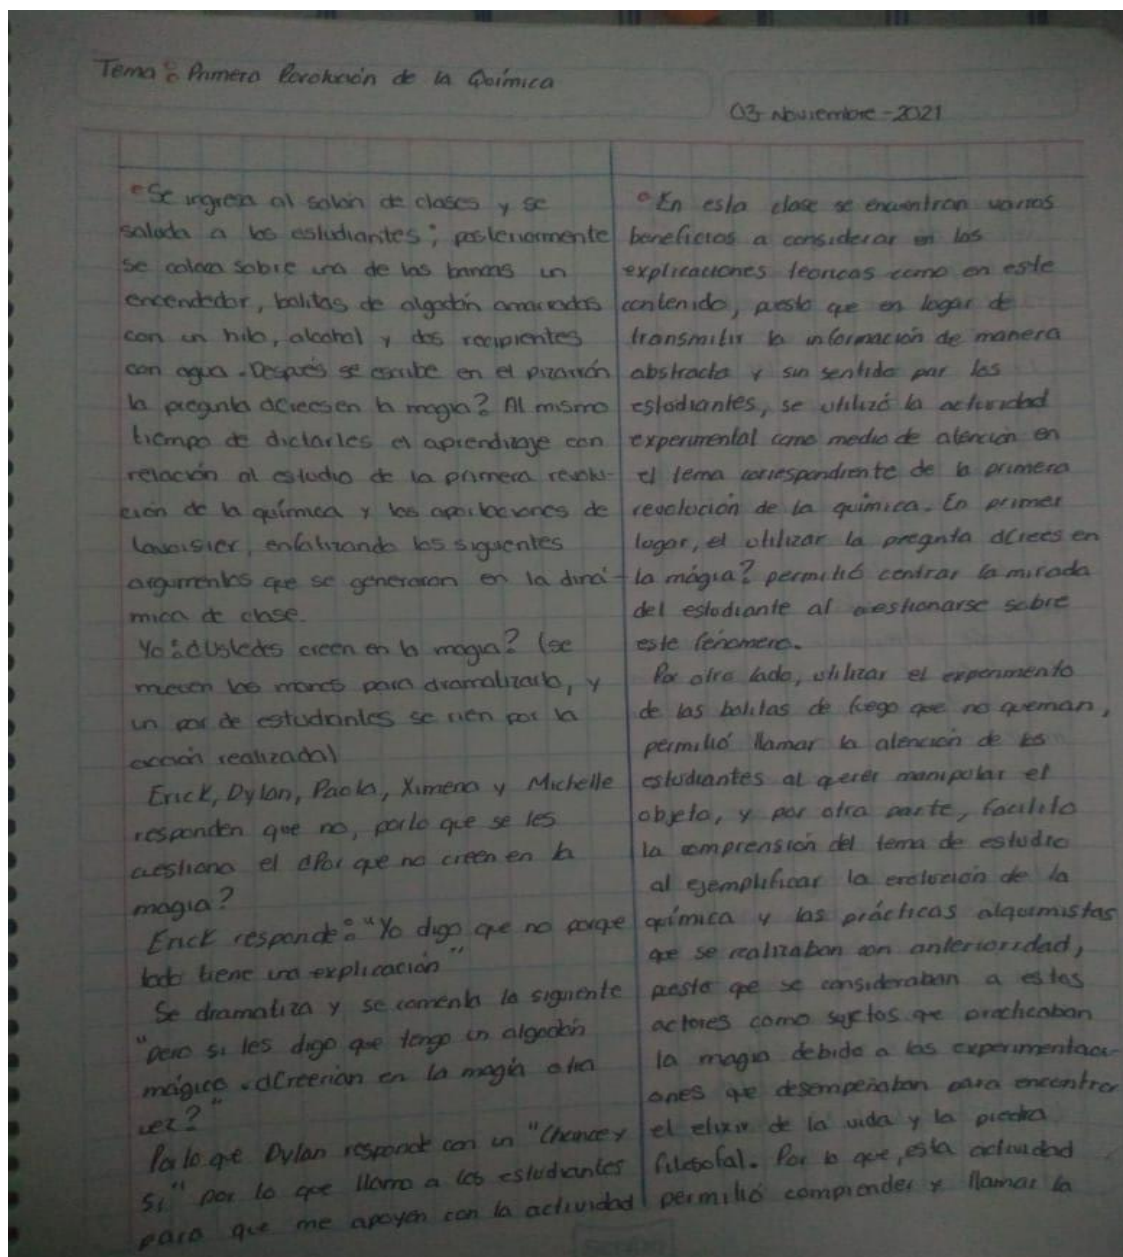 Tema: Primera Revolución de la Química
03-Noviembre-2021
Se ingresa al salón de clases y se
saluda a los estudiantes; posteriormente
se coloca sobre una de las bancas un
encendedor, bolitas de algodón amarradas
con un hilo, alcohol y dos recipientes
con agua. Después se escribe en el pizarrón
la pregunta ¿Crees en la magia? Al mismo
tiempo de dictarles el aprendizaje con
relación al estudio de la primera revolu-
ción de la química y las aportaciones de
Lavoisier, enfatizando los siguientes
argumentos que se generaron en la diná-
mica de clase.
Yo: ¿Ustedes creen en la magia? (se
mueven las manos para dramatizarlo, y
un par de estudiantes se ríen por la
acción realizada)
Erick, Dylan, Paola, Ximena y Michelle
responden que no, por lo que se les
cuestiona el ¿Por que no creen en la
magia?
Erick responde: "Yo digo que no porque
todo tiene una explicación"
Se dramatiza y se comenta lo siguiente
"pero si les digo que tengo un algodón
mágico. ¿Creerían en la magia otra
vez?"
Por lo que Dylan responde con un "Chance y
si" por lo que llamo a los estudiantes
para que me apoyen con la actividad
En esta clase se encuentran varios
beneficios a considerar en las
explicaciones teóricas como en este
contenido, puesto que en lugar de
transmitir la información de manera
abstracta y sin sentido por los
estudiantes, se utilizó la actividad
experimental como medio de atención en
el tema correspondiente de la primera
revolución de la química. En primer
lugar, el utilizar la pregunta ¿Crees en
la mágia? permitió centrar la mirada
del estudiante al cuestionarse sobre
este fenómeno.
Por otro lado, utilizar el experimento
de las bolitas de fuego que no queman,
permitió llamar la atención de los
estudiantes al querer manipular el
objeto, y por otra parte, facilito
la comprensión del tema de estudio
al ejemplificar la evolución de la
química y las prácticas alquimistas
que se realizaban con anterioridad,
puesto que se consideraban a estos
actores como sujetos que practicaban
la magia debido a las experimentaci
ones que desempeñaban para encontrar
el elixir de la vida y la piedra
filosofal. Por lo que, esta actividad
permitió comprender y llamar la